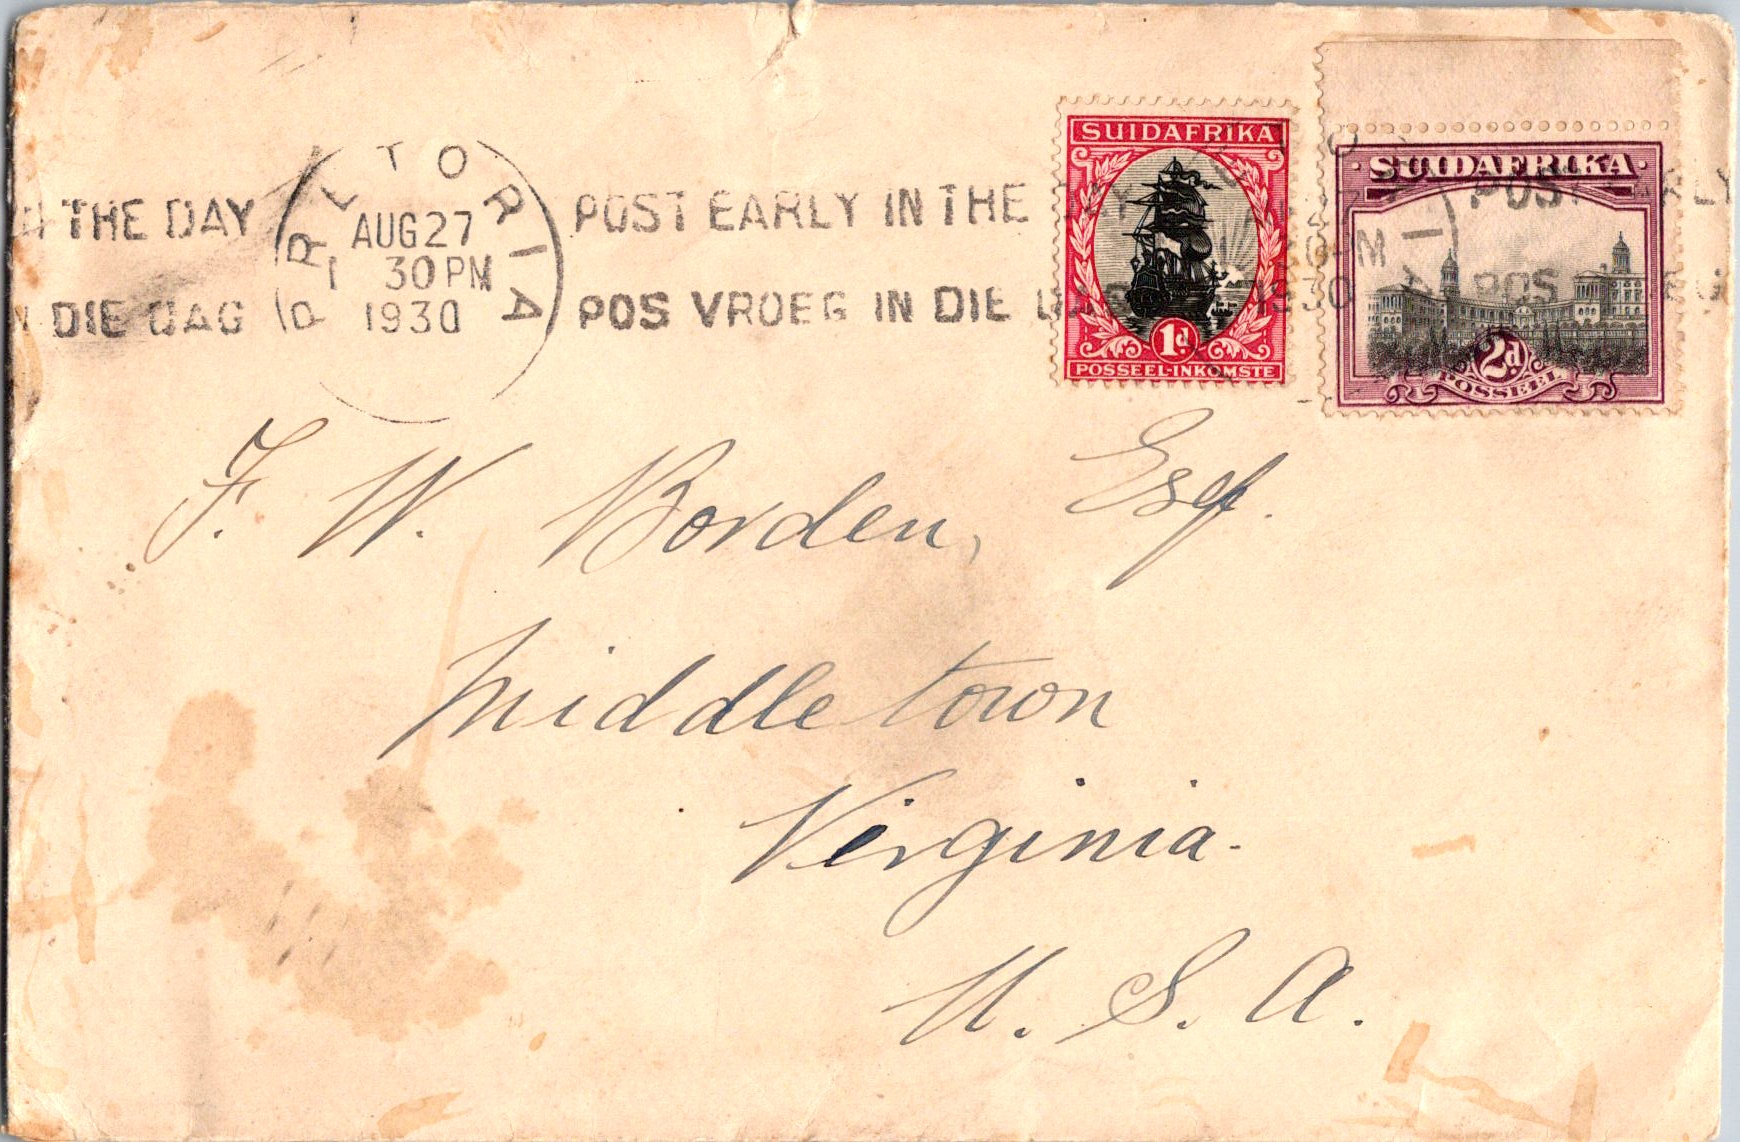 N THE DAY PRETORIA POST EARLY IN THE DAY
AUG 27
1 30 PM
1930
N DIE DAG POS VROEG IN DIE DAG
SUIDAFRIKA
1d.
POSSEEL-INKOMSTE
SUIDAFRIKA
2d.
POSSEEL
POST
RLY
POS
0-M
1930
F. W. Borden, Esq.
Middletown
Virginia.
U. S. A.